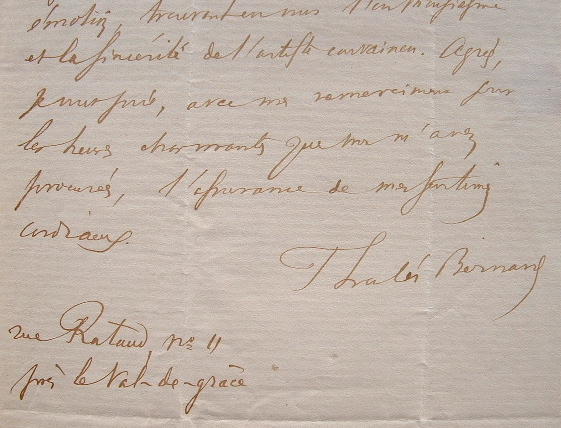 émotion, trouvant en vous l'enthousiasme
et la sincérité de l'artiste convaincu. Agréez,
je vous prie, avec mes remerciements pour
les heures charmantes que vous m'avez
procurées, l'assurance de mes sentiments
cordiaux.
Thalès Bernard
rue Rataud, nº 11
près le Val-de-grâce